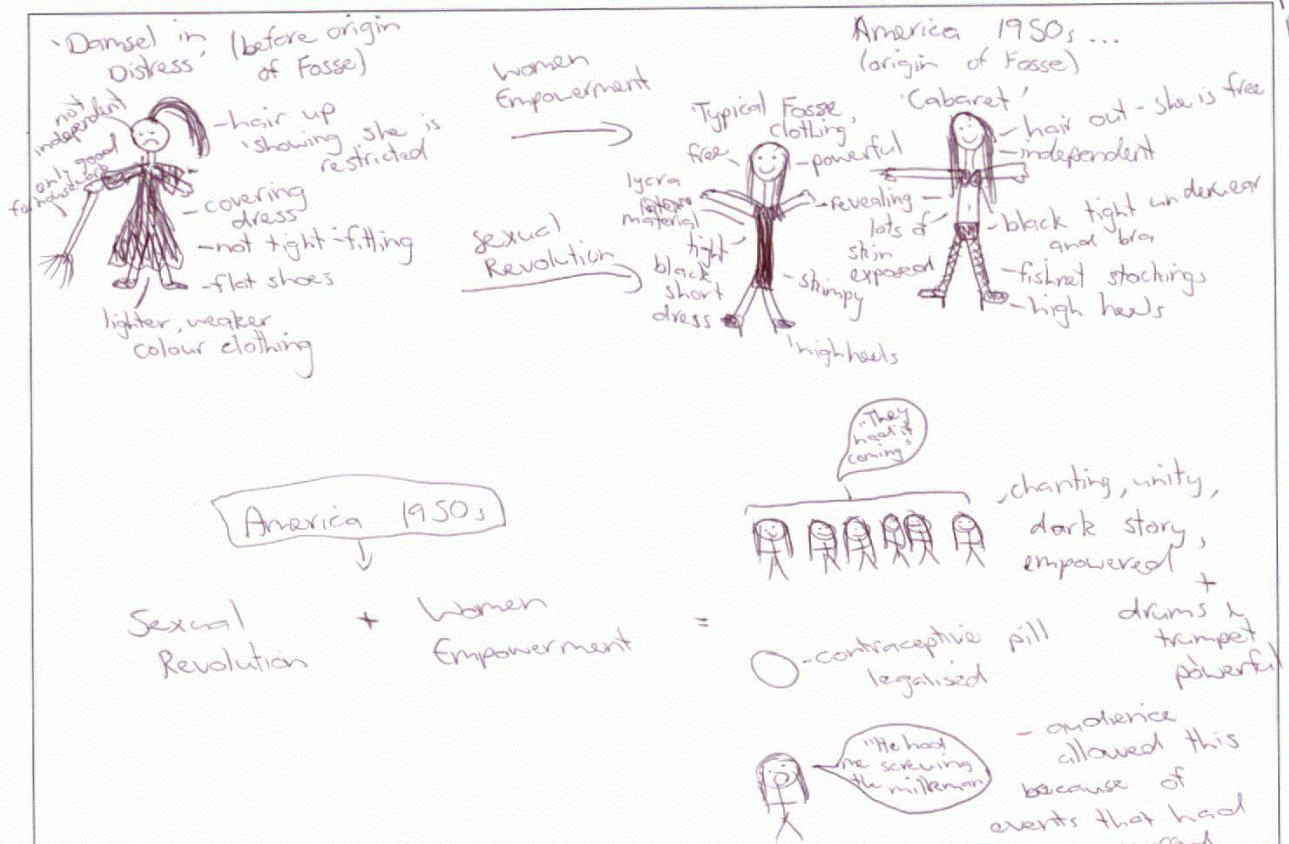 'Damsel in
Distress' (before origin
of Fosse)
not
independent
only good
for housework
-hair up
'showing she is
restricted
-covering
dress
-not tight-fitting
-flat shoes
lighter, weaker
colour clothing
Women
Empowerment
Sexual
Revolution
America 1950s...
(origin of Fosse)
'Typical Fosse
clothing'
free
-powerful
lycra
material
tight
black
short
dress
-skimpy
'high heels
'Cabaret'
-hair out - she is free
-independent
-revealing-
lots of
skin
exposed
-black tight underwear
and bra
-fishnet stockings
-high heels
America 1950s
Sexual
Revolution
+
Women
Empowerment
=
"They
had it
coming"
, chanting, unity,
dark story,
empowered
+
drums &
trumpet
powerful
-contraceptive pill
legalised
"He had
me screwing
the milkman
- audience
allowed this
because of
events that had